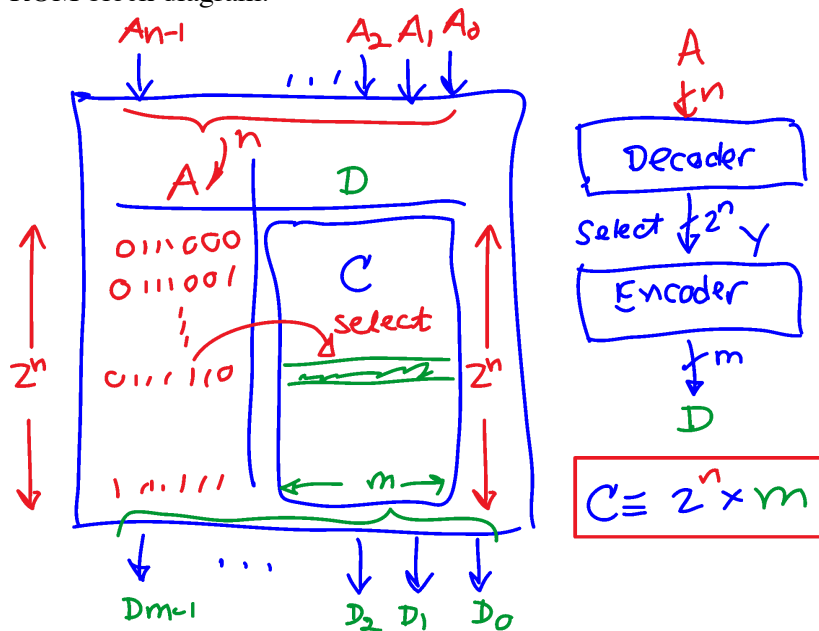 ROM block diagram:
An-1 ... A2 A1 A0
n
A D
0111000
0111001
C
select
0111110
2ⁿ
2ⁿ
m
111111
Dm-1 ... D2 D1 D0
A
n
Decoder
Select 2ⁿ Y
Encoder
m
D
C ≡ 2ⁿ × m